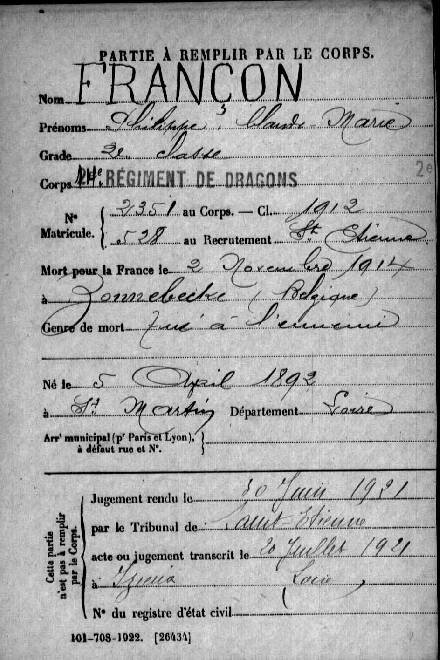 PARTIE À REMPLIR PAR LE CORPS.
Nom FRANÇON
Prénoms Philippe, Claude Marie
Grade 2e classe
Corps RÉGIMENT DE DRAGONS 2e
N° Matricule. { 2351 au Corps. — Cl. 1912
528 au Recrutement St Etienne
Mort pour la France le 2 Novembre 1914
à Zonnebecke (Belgique)
Genre de mort tué à l'ennemi
Né le 5 April 1892
à St Martin Département Loire
Arrt municipal (pr Paris et Lyon),
à défaut rue et N°. }
Cette partie n'est pas à remplir par le Corps. {
Jugement rendu le 30 Juin 1921
par le Tribunal de Saint-Etienne
acte ou jugement transcrit le 20 Juillet 1921
à Izieux Loire
N° du registre d'état civil
101-708-1922. [26434]